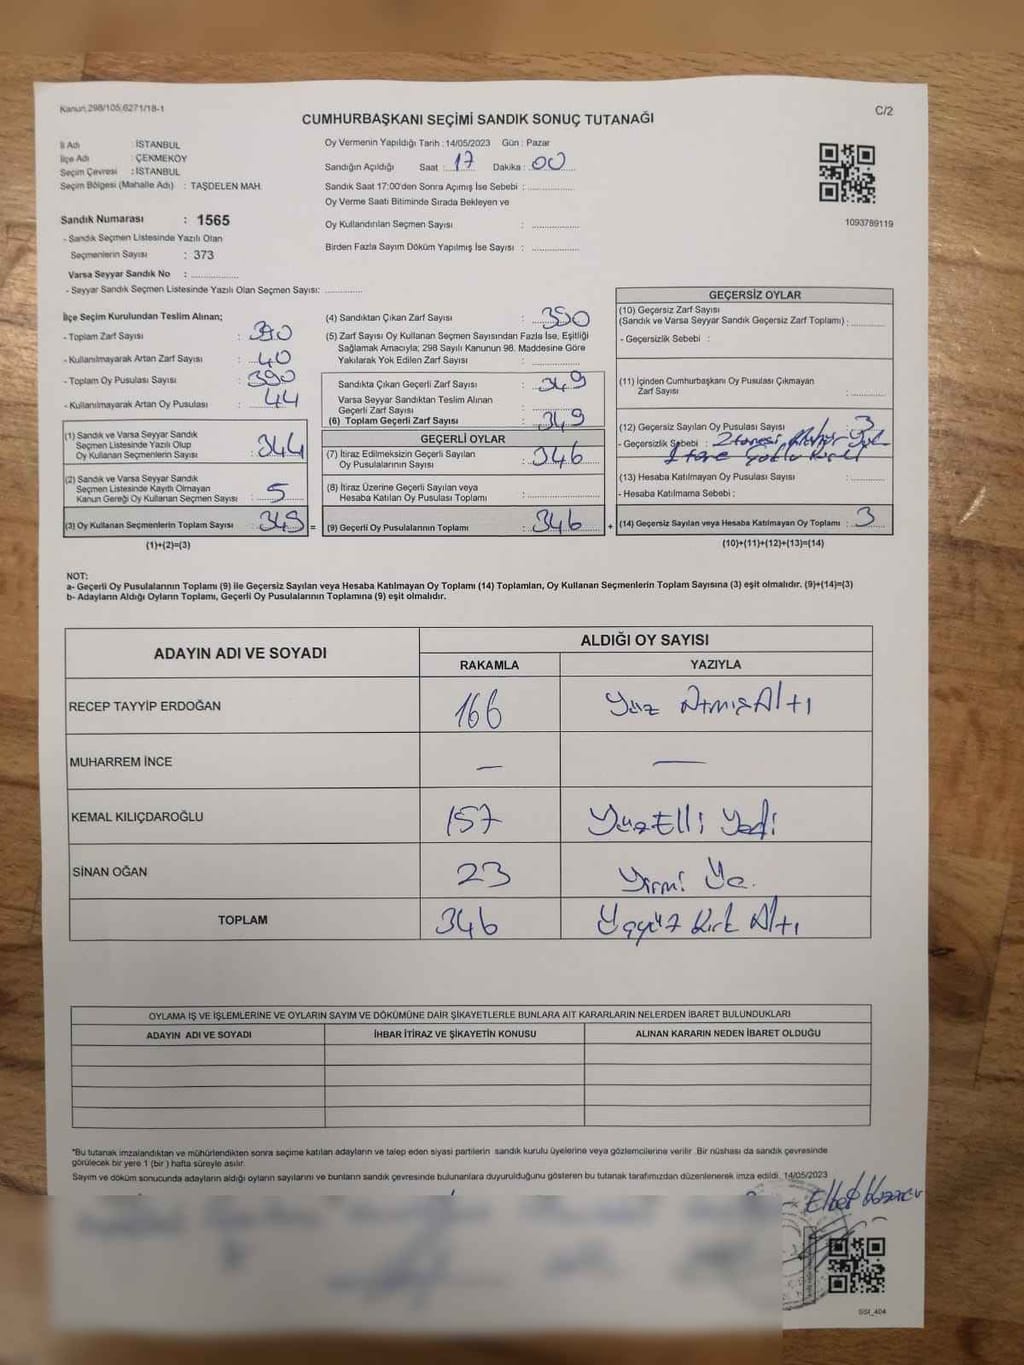 Kanun,298/105,6271/18-1
C/2
CUMHURBAŞKANI SEÇİMİ SANDIK SONUÇ TUTANAĞI
İl Adı : İSTANBUL
İlçe Adı : ÇEKMEKÖY
Seçim Çevresi : İSTANBUL
Seçim Bölgesi (Mahalle Adı) : TAŞDELEN MAH.
Sandık Numarası : 1565
- Sandık Seçmen Listesinde Yazılı Olan
Seçmenlerin Sayısı : 373
Varsa Seyyar Sandık No : ..............
- Seyyar Sandık Seçmen Listesinde Yazılı Olan Seçmen Sayısı: ............
Oy Vermenin Yapıldığı Tarih : 14/05/2023 Gün : Pazar
Sandığın Açıldığı Saat : 17 Dakika : 00
Sandık Saat 17:00'den Sonra Açmış İse Sebebi : ..............
Oy Verme Saati Bitiminde Sırada Bekleyen ve
Oy Kullandırılan Seçmen Sayısı : ..............
Birden Fazla Sayım Döküm Yapılmış İse Sayısı : ..............
1093789119
İlçe Seçim Kurulundan Teslim Alınan;
- Toplam Zarf Sayısı : 390
- Kullanılmayarak Artan Zarf Sayısı : 40
- Toplam Oy Pusulası Sayısı : 390
- Kullanılmayarak Artan Oy Pusulası : 44
(1) Sandık ve Varsa Seyyar Sandık
Seçmen Listesinde Yazılı Olup
Oy Kullanan Seçmenlerin Sayısı : 344
(2) Sandık ve Varsa Seyyar Sandık
Seçmen Listesinde Kayıtlı Olmayan
Kanun Gereği Oy Kullanan Seçmen Sayısı : 5
(3) Oy Kullanan Seçmenlerin Toplam Sayısı : 349 =
(1)+(2)=(3)
(4) Sandıktan Çıkan Zarf Sayısı : 350
(5) Zarf Sayısı Oy Kullanan Seçmen Sayısından Fazla İse, Eşitliği
Sağlamak Amacıyla; 298 Sayılı Kanunun 98. Maddesine Göre
Yakılarak Yok Edilen Zarf Sayısı : ..............
Sandıkta Çıkan Geçerli Zarf Sayısı : 349
Varsa Seyyar Sandıktan Teslim Alınan
Geçerli Zarf Sayısı : ..............
(6) Toplam Geçerli Zarf Sayısı : 349
GEÇERLİ OYLAR
(7) İtiraz Edilmeksizin Geçerli Sayılan
Oy Pusulalarının Sayısı : 346
(8) İtiraz Üzerine Geçerli Sayılan veya
Hesaba Katılan Oy Pusulası Toplamı : ..............
(9) Geçerli Oy Pusulalarının Toplamı : 346 +
GEÇERSİZ OYLAR
(10) Geçersiz Zarf Sayısı
(Sandık ve Varsa Seyyar Sandık Geçersiz Zarf Toplamı) : ..............
- Geçersizlik Sebebi :
(11) İçinden Cumhurbaşkanı Oy Pusulası Çıkmayan
Zarf Sayısı : ..............
(12) Geçersiz Sayılan Oy Pusulası Sayısı : 3
- Geçersizlik Sebebi : 2 tanesi
(13) Hesaba Katılmayan Oy Pusulası Sayısı : ..............
- Hesaba Katılmama Sebebi :
(14) Geçersiz Sayılan veya Hesaba Katılmayan Oy Toplamı : 3
(10)+(11)+(12)+(13)=(14)
NOT:
a- Geçerli Oy Pusulalarının Toplamı (9) ile Geçersiz Sayılan veya Hesaba Katılmayan Oy Toplamı (14) Toplamları, Oy Kullanan Seçmenlerin Toplam Sayısına (3) eşit olmalıdır. (9)+(14)=(3)
b- Adayların Aldığı Oyların Toplamı, Geçerli Oy Pusulalarının Toplamına (9) eşit olmalıdır.
ADAYIN ADI VE SOYADI
ALDIĞI OY SAYISI
RAKAMLA YAZIYLA
RECEP TAYYİP ERDOĞAN 166 Yüz Atmış Altı
MUHARREM İNCE — —
KEMAL KILIÇDAROĞLU 157 Yüz Elli Yedi
SİNAN OĞAN 23 Yirmi Üç
TOPLAM 346 Üçyüz Kırk Altı
OYLAMA İŞ VE İŞLEMLERİNE VE OYLARIN SAYIM VE DÖKÜMÜNE DAİR ŞİKAYETLERLE BUNLARA AİT KARARLARIN NELERDEN İBARET BULUNDUKLARI
ADAYIN ADI VE SOYADI İHBAR İTİRAZ VE ŞİKAYETİN KONUSU ALINAN KARARIN NEDEN İBARET OLDUĞU
*Bu tutanak imzalandıktan ve mühürlendikten sonra seçime katılan adayların ve talep eden siyasi partilerin sandık kurulu üyelerine veya gözlemcilerine verilir. Bir nüshası da sandık çevresinde
görülecek bir yere 1 (bir) hafta süreyle asılır.
Sayım ve döküm sonucunda adayların aldığı oyların sayılarını ve bunların sandık çevresinde bulunanlara duyurulduğunu gösteren bu tutanak tarafımızdan düzenlenerek imza edildi. 14/05/2023
SSI_404